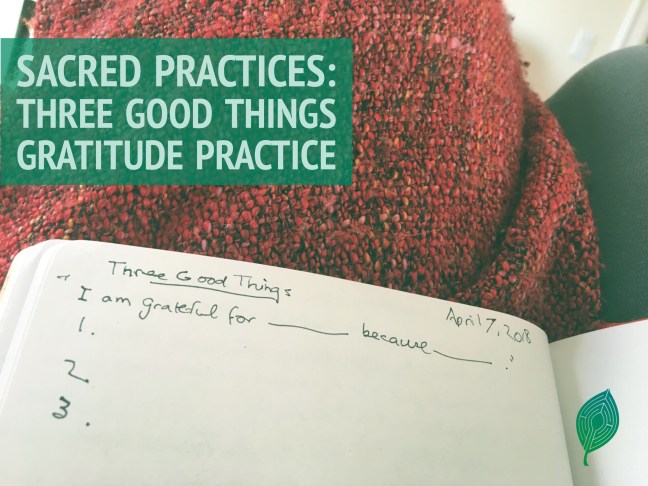 SACRED PRACTICES:
THREE GOOD THINGS
GRATITUDE PRACTICE
Three Good Things
April 7, 2018
"I am grateful for ______ because ______."
1.
2.
3.